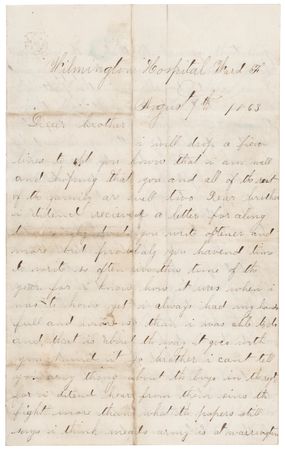 Wilmington Hospital Ward
August 9th 1863
Dear brother
i will drop a few
lines to let you know that i am well
and hopeing that you and all of the rest
of the family ar well two Dear brother
i dident received a letter for along
you write oftener and
more but you havend time
to write so often time of the
year for i know how it was when i
was to home yet i always had my hands
full and more than i was able to do
and that is about the way it goes with
you brother i cant tell
you any thing about the boys in the
for i dident hear from them since the
fight more than what the papers still
says i think meads army is at warrington